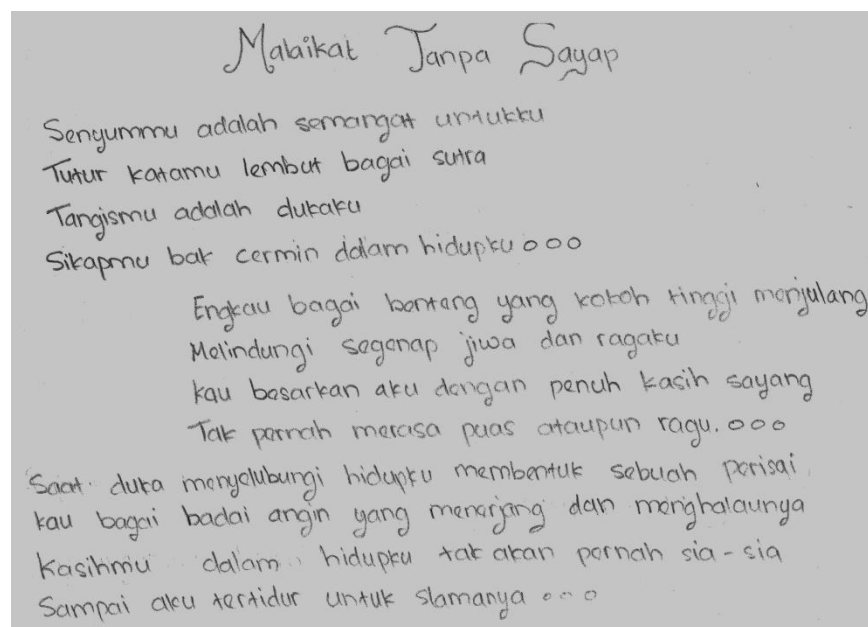 Malaikat Tanpa Sayap
Senyummu adalah semangat untukku
Tutur katamu lembut bagai sutra
Tangismu adalah dukaku
Sikapmu bak cermin dalam hidupku ooo
Engkau bagai benteng yang kokoh tinggi menjulang
Melindungi segenap jiwa dan ragaku
Kau besarkan aku dengan penuh kasih sayang
Tak pernah merasa puas ataupun ragu. ooo
Saat duka menyelubungi hidupku membentuk sebuah perisai
Kau bagai badai angin yang menerjang dan menghalaunya
Kasihmu dalam hidupku tak akan pernah sia-sia
Sampai aku tertidur untuk slamanya ooo